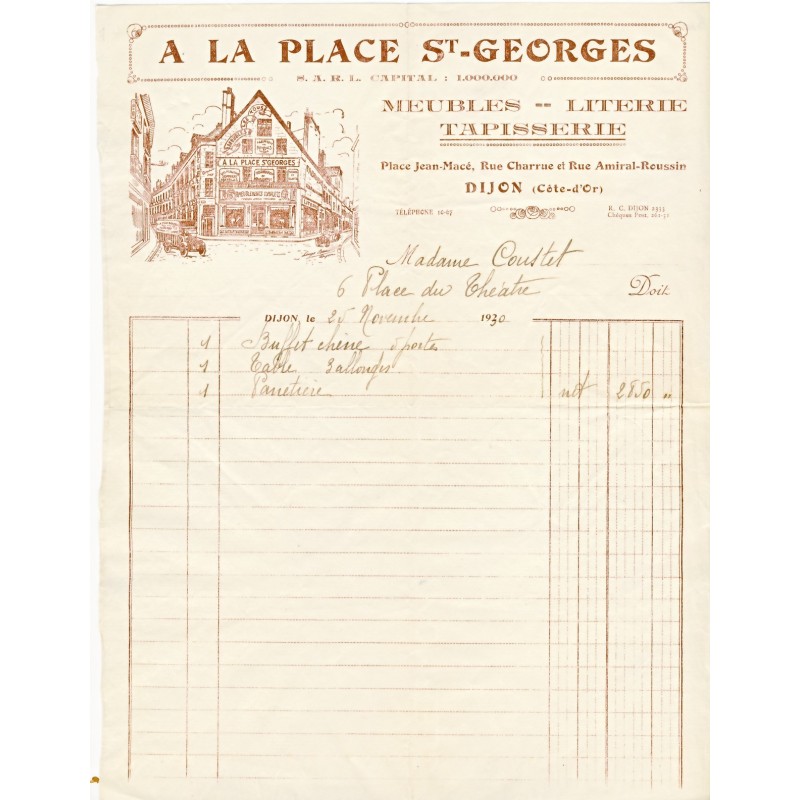 A LA PLACE ST-GEORGES
S. A. R. L. CAPITAL : 1.000.000
MEUBLES -- LITERIE
TAPISSERIE
A LA PLACE ST GEORGES
Place Jean-Macé, Rue Charrue et Rue Amiral-Roussin
DIJON (Côte-d'Or)
TÉLÉPHONE 10-07
R. C. DIJON 2935
Chèques Post. 262-51
Madame Coustet
6 Place du Théâtre
Doit
DIJON, le 25 Novembre 1930
1 Buffet chêne 5 portes
1 Table 3 allonges
1 Panetière net 2850 "